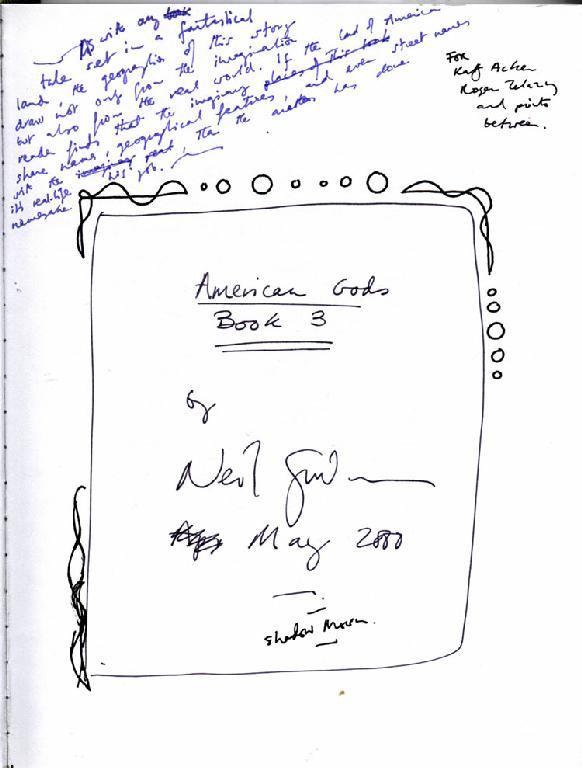 As with any
tale set in a fantastical
land, the geography of this story
draw not only from the imagination
but also from the real world. If the
reader finds that the imaginary land of America
share names, geographical features, and even street names
with the real, the the author has done
its real-life his job.
namesake
For
Kathy Acker
Roger Zelazny
and points
between.
American Gods
Book 3
by
Neil Gaiman
May 2000
Shadow Moon